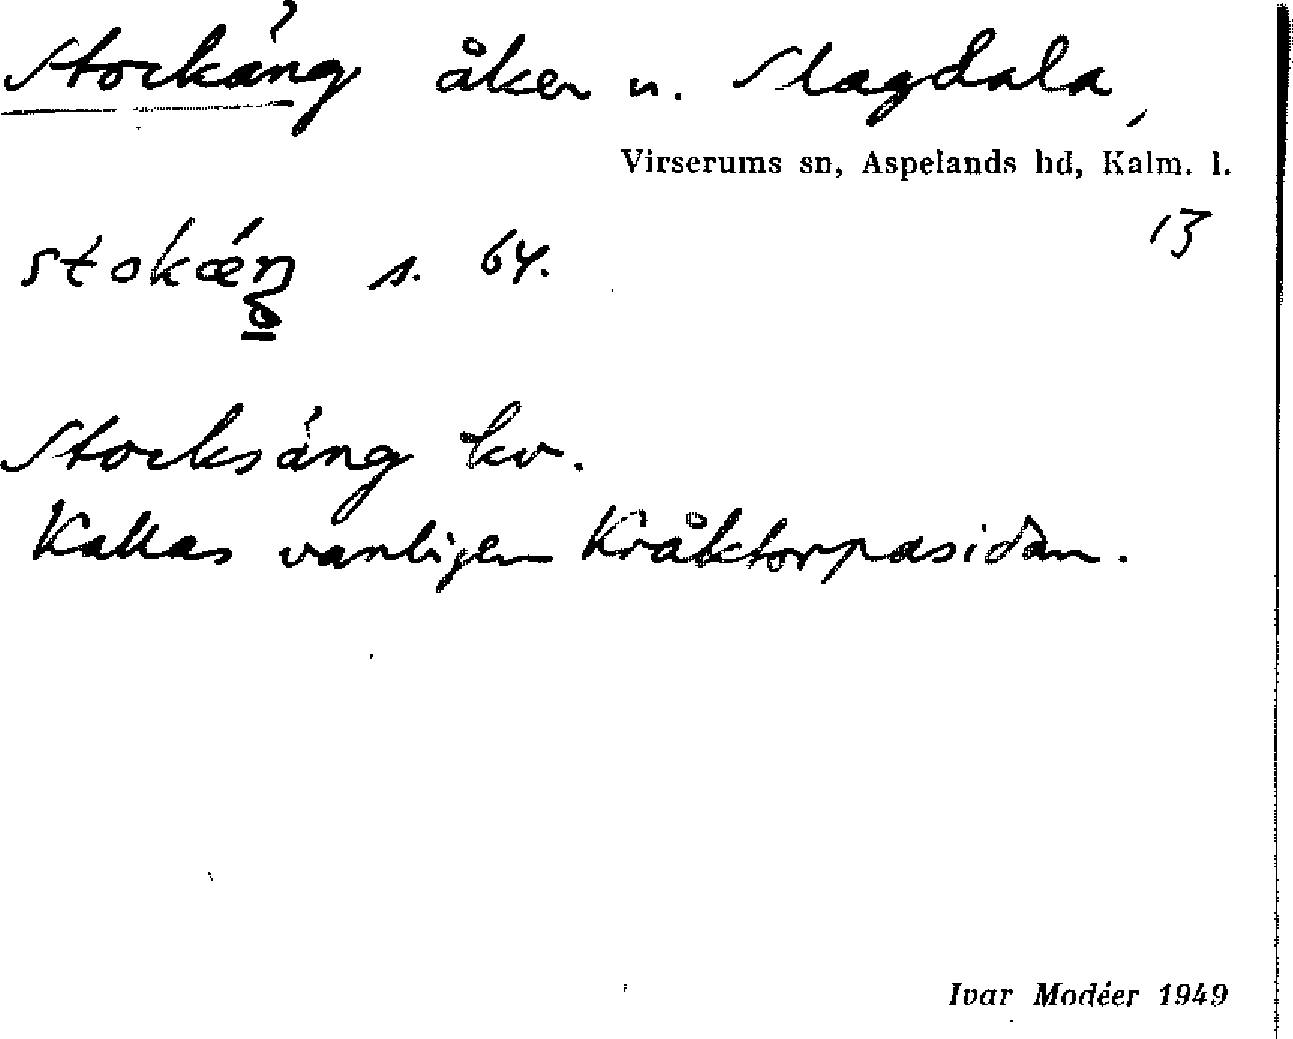 Stockäng åker u. Slagdala,
Virserums sn, Aspelands hd, Kalm. l.
13
stokǽŋ s. 64.
Stocksäng kv.
Kallas vanligen Kråktorpasidan.
Ivar Modéer 1949